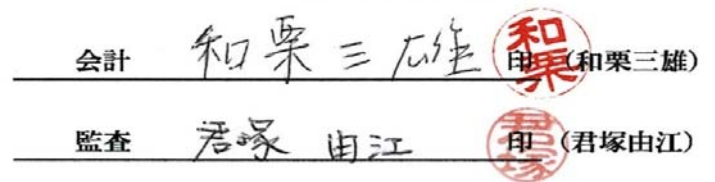 会計 和栗三雄 印 和栗 (和栗三雄)
監査 君塚 由江 印 君塚 (君塚由江)